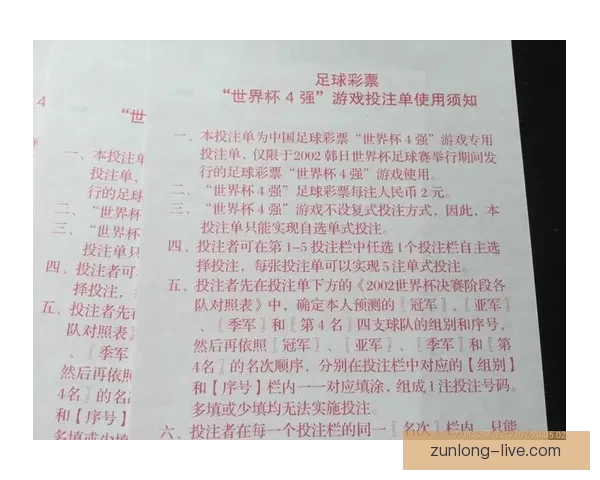 足球彩票
“世界杯4强”游戏投注单使用须知
一、本投注单为中国足球彩票“世界杯4强”游戏专用
投注单，仅限于2002韩日世界杯足球赛举行期间发
行的足球彩票“世界杯4强”游戏使用。
二、“世界杯4强”足球彩票每注人民币2元。
三、“世界杯4强”游戏不设复式投注方式，因此，本
投注单只能实现自选单式投注。
四、投注者可在第1-5投注栏中任选1个投注栏自主选
择投注，每张投注单可以实现5注单式投注。
五、投注者先在投注单下方的《2002世界杯决赛阶段各
队对照表》中，确定本人预测的〖冠军〗、〖亚军〗
、〖季军〗和〖第4名〗四支球队的组别和序号，
然后再依照〖冠军〗、〖亚军〗、〖季军〗和〖第
4名〗的名次顺序，分别在投注栏中对应的【组别】
和【序号】栏内一一对应填涂，组成1注投注号码。
多填或少填均无法实施投注。
六、投注者在每一个投注栏的同一〖名次〗栏内，只能
4
“世
一、本投注单
投注单，
行的足球
二、“世界杯
三、“世界杯
投注单只
四、投注者可
择投注，
五、投注者先在
队对照表》
、〖季军
然后再依照
4名〗的名
和【序号】
多填或少填
zunlong-live.com